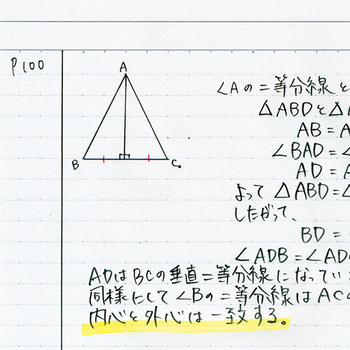 P100
A
B
C
∠Aの二等分線と
△ABDと△
AB = A
∠BAD = ∠
AD = A
よって △ABD = △
したがって、
BD =
∠ADB = ∠AD
ADはBCの垂直二等分線になってい
同様にして∠Bの二等分線はACの
内心と外心は一致する。